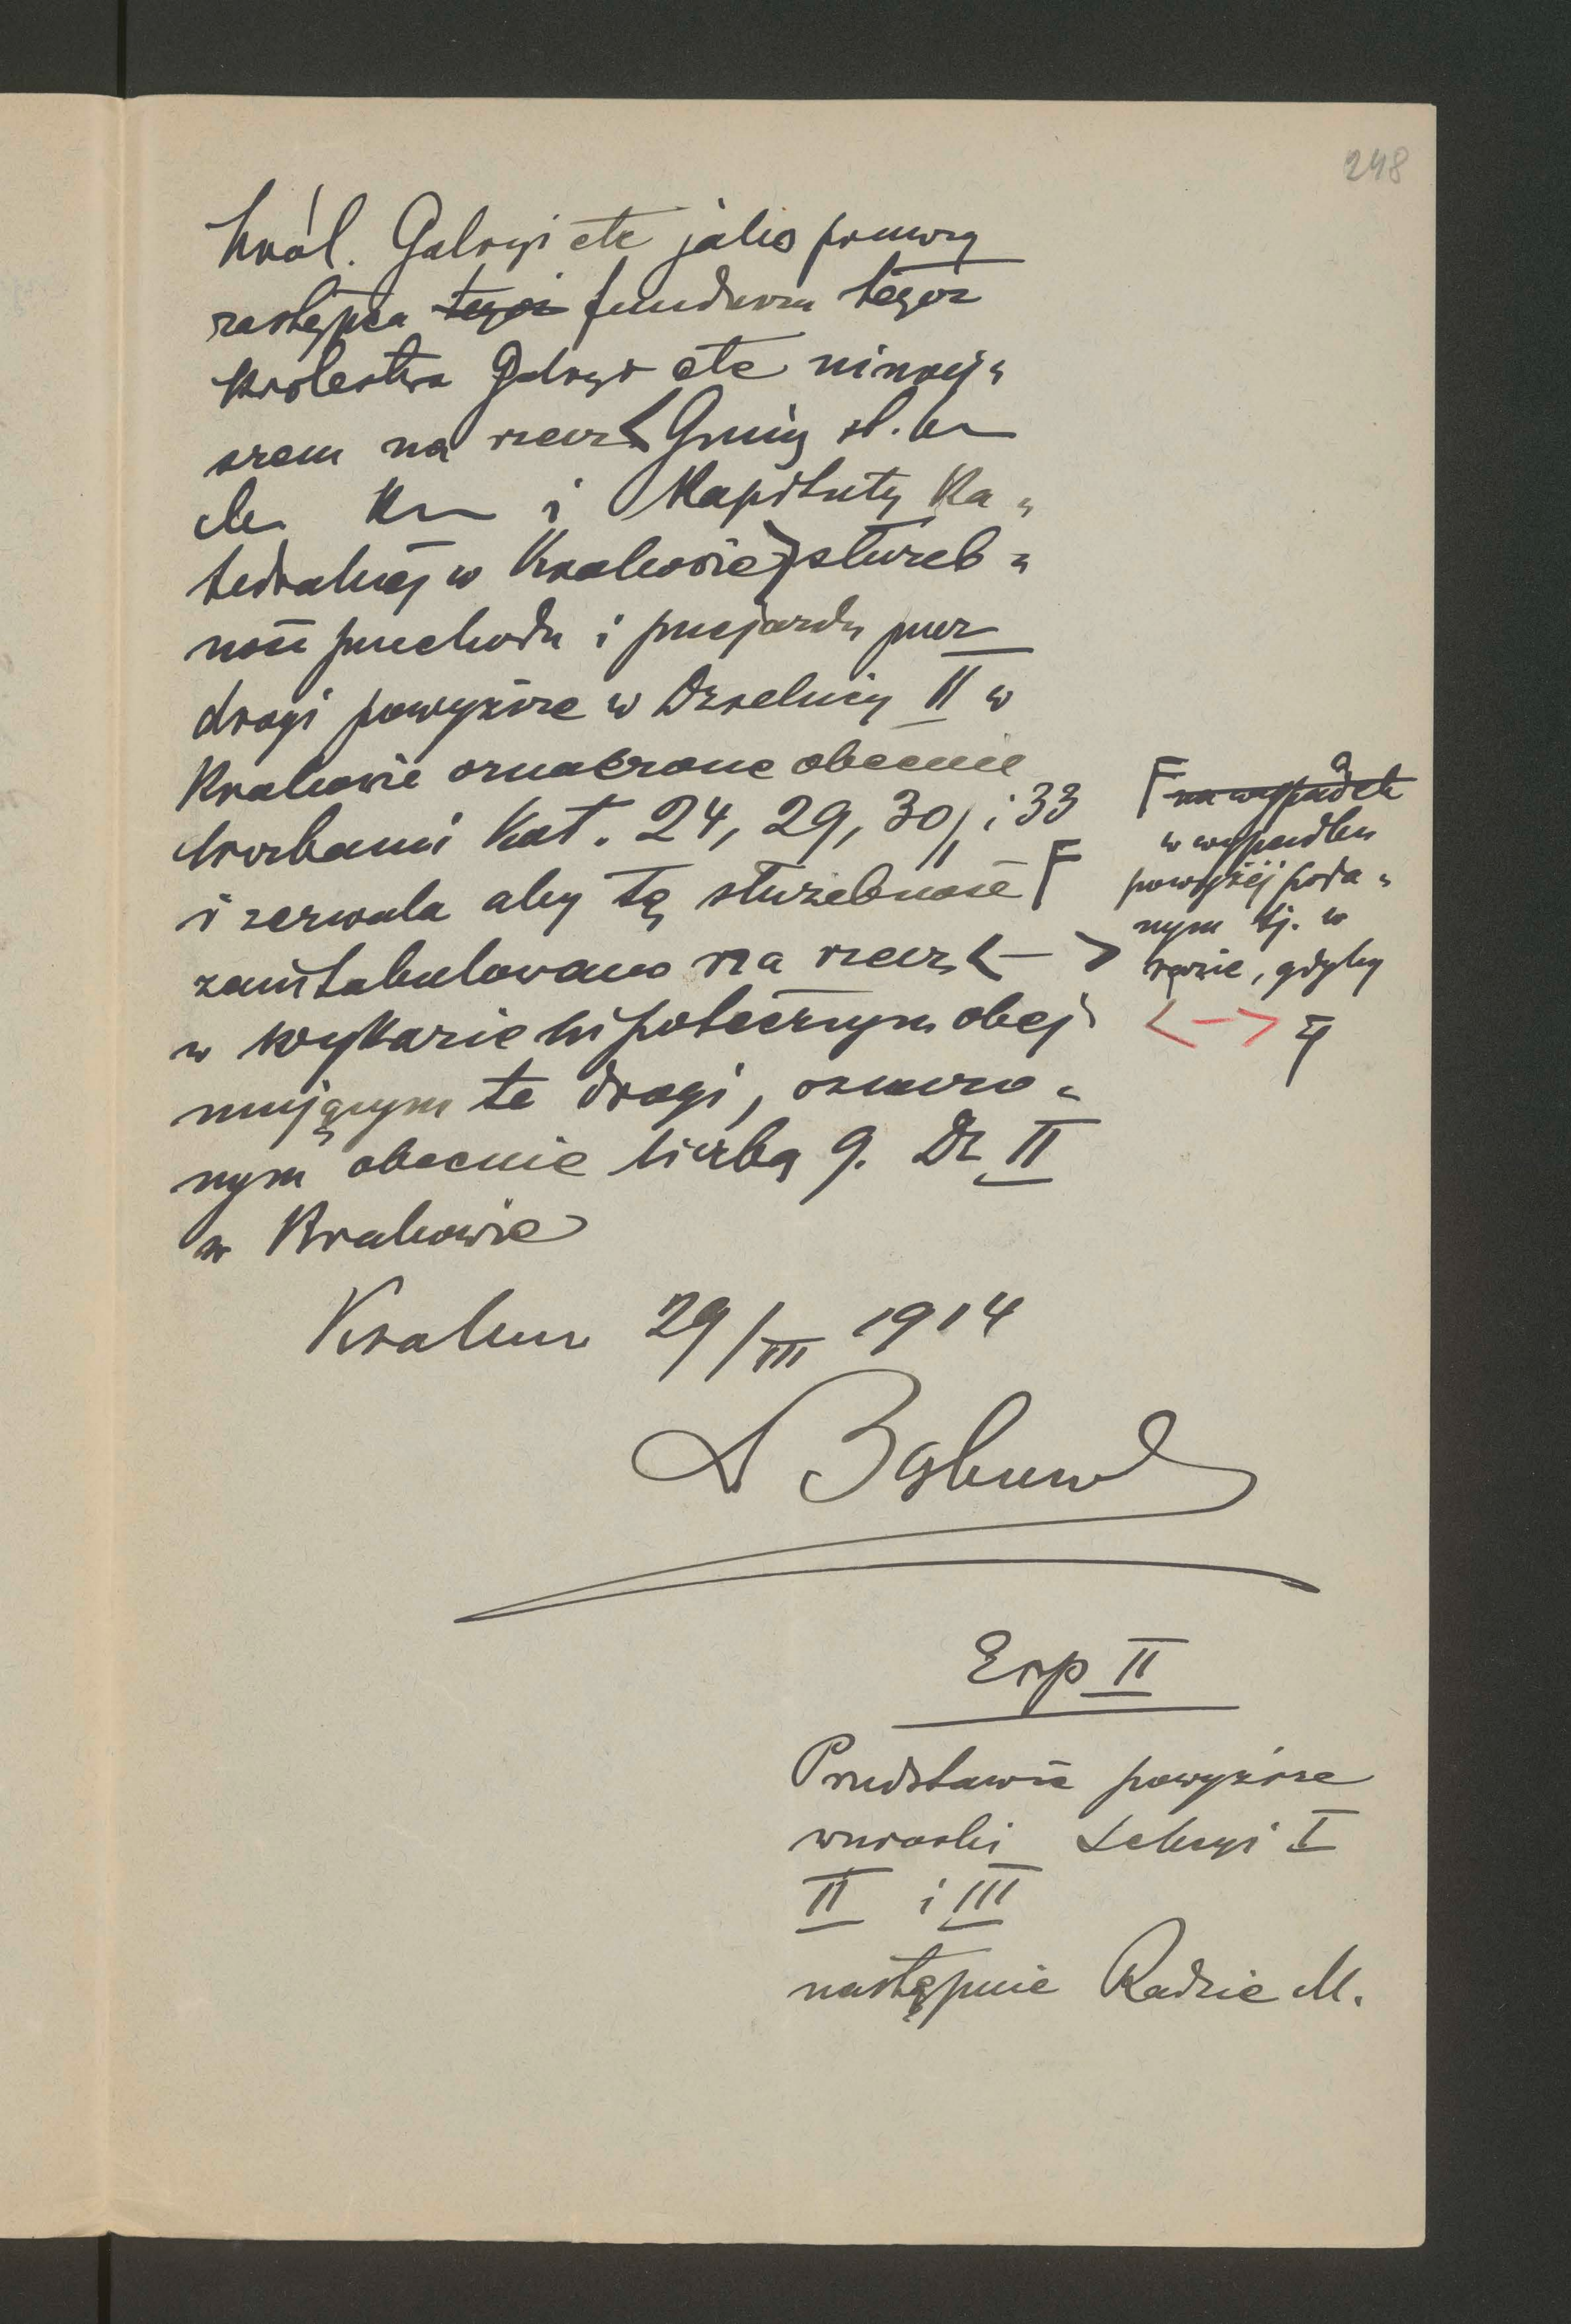 248
Król. Galicyi etc jako prawny
zastępca tegoż funduszu tegoż
Królestwa Galicyi etc niniej„
szem na rzecz < Gminy st. kr
m. Kr i Kapituły Ka„
tedralnej w Krakowie > służeb„
ność przechodu i przejazdu przez
drogi powyższe w Dzielnicy II w
Krakowie oznaczone obecnie
liczbami Kat. 24, 29, 30/1 i 33
i zezwala aby tę służebność F
zaintabulowano na rzecz < — >
w wykazie hipotecznym obej„
mującym te drogi, oznaczo„
nym obecnie liczbą 9. Dz II
w Krakowie
F na wypadek
w wypadku
powyżej poda„
nym tj. w
razie, gdyby
< — >
Kraków 29/III 1914
Exp II
Przedstawić powyższe
wnioski Sekcyi I
II i III
następnie Radzie M.